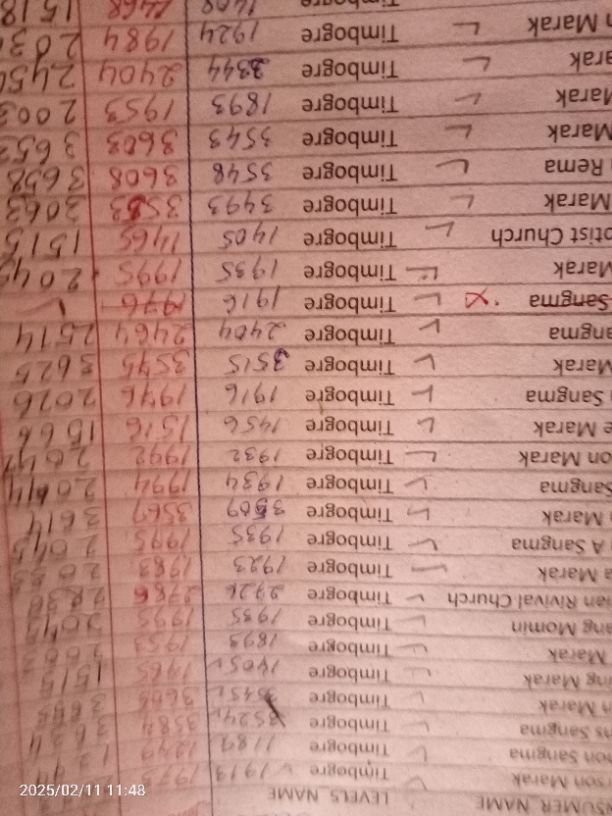 NSUMER NAME LEVELS NAME
son Marak Timbogre 1913 1973
mon Sangma Timbogre 1189 1249
ns Sangma Timbogre 3524 3584 3634
n Marak Timbogre 3545
ng Marak Timbogre 1405 1465 1515
Marak Timbogre 1893 1953 2003
ang Momin Timbogre 1935 1995 2045
ian Rivival Church Timbogre 2786
a Marak Timbogre 1923 1983
A Sangma Timbogre 1935 1995 2045
Marak Timbogre 3509 3569 3614
Sangma Timbogre 1934 1994 2044
on Marak Timbogre 1932 1992
e Marak Timbogre 1456 1516 1566
Sangma Timbogre 1916 1976 2026
Marak Timbogre 3515 3575 3625
angma Timbogre 2404 2464 2514
Sangma Timbogre 1916 1976
Marak Timbogre 1935 1995 2045
ptist Church Timbogre 1405 1465 1515
Marak Timbogre 3493 3553 3063
Rema Timbogre 3548 3608 3658
Marak Timbogre 3543 3603 3653
Marak Timbogre 1893 1953 2003
arak Timbogre 2344 2404 245
n Marak Timbogre 1924 1984 203
Timbogre 1408 1468 1518
2025/02/11 11:48